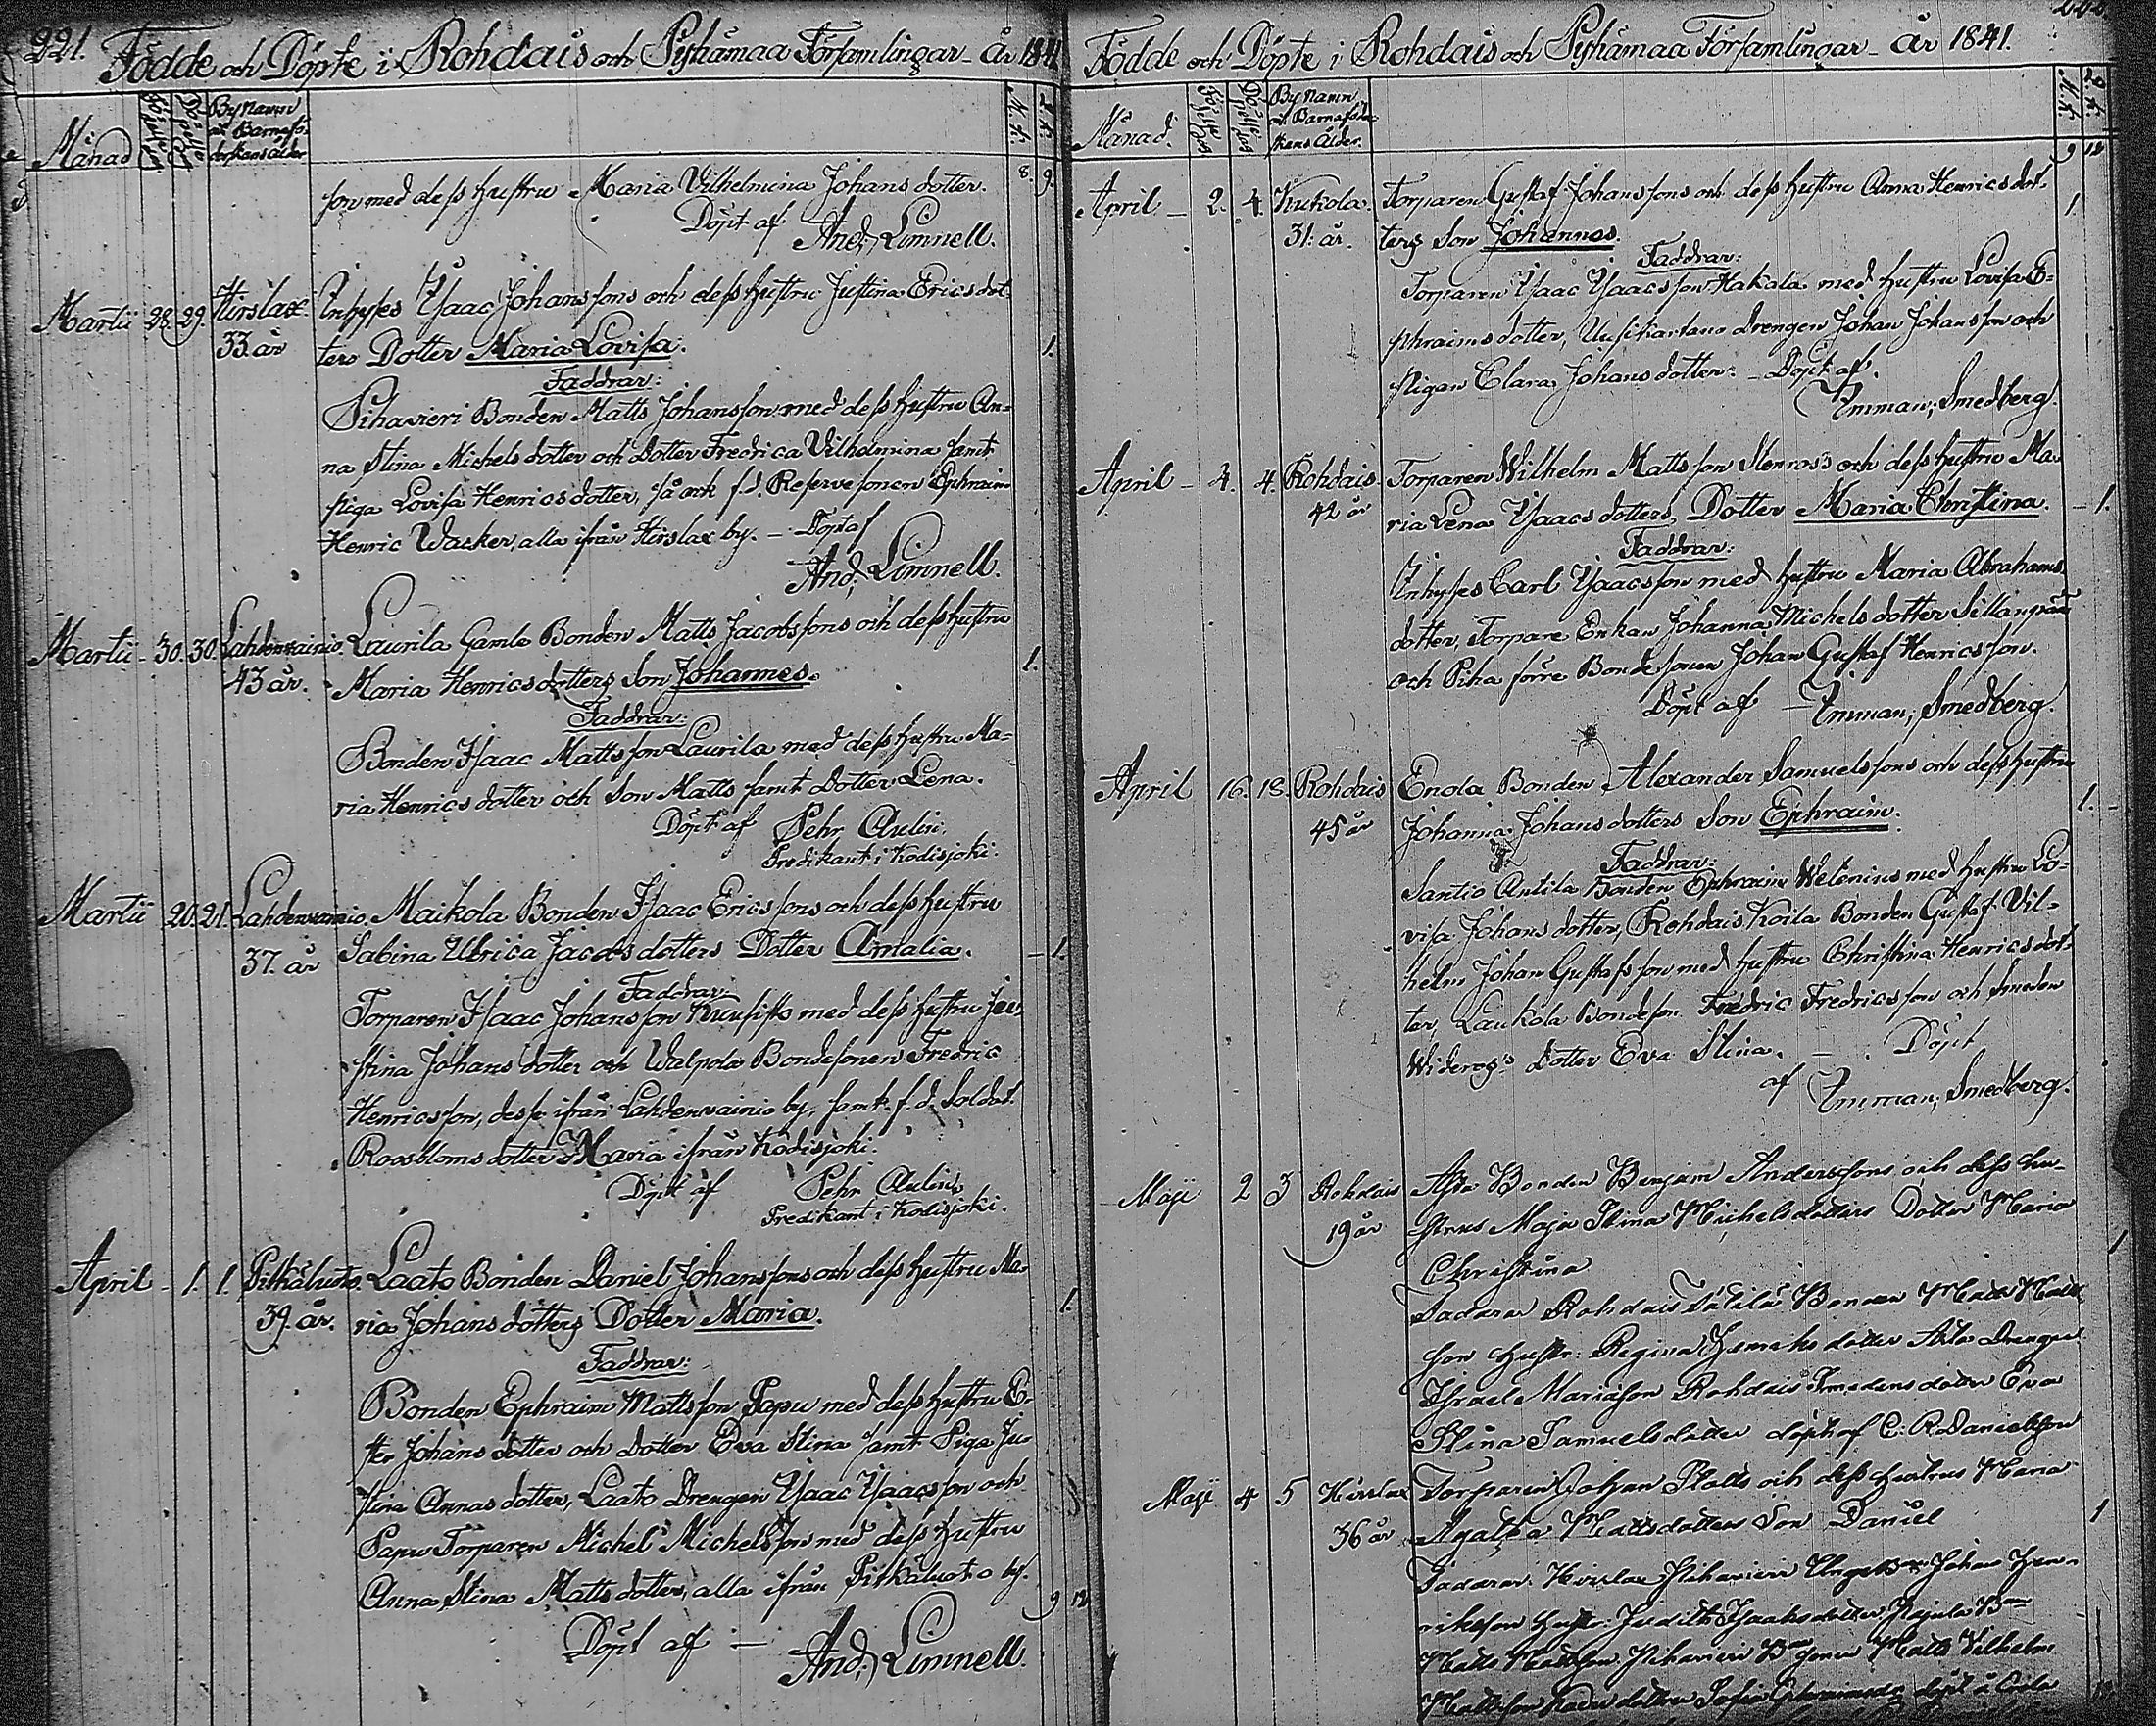 221.
Födde och Döpte i Rohdais och Pyhämaa Församlingar - år 1841
Månad
By Namn
M. K.
Q. K.
8. 9.
son med dess hustru Maria Vilhelmina Johansdotter.
Döpt af And; Limnell.
Martii 28. 29. Hirslax Inhyses Ysaac Johanssons och dess hustru Justina Ericsdot-
33. år ters Dotter Maria Lovisa. 1.
Faddrar:
Pihavieri Bonden Matts Johansson med dess hustru An-
na Stina Michelsdotter och dotter Fredrica Vilhelmina samt
piga Lovisa Henricsdotter, så ock f.d. Reservesonen Ephraim
Henric Wacker, alla ifrån Hirslax by. - Döpt af
And; Limnell.
Martii - 30. 30. Lahdenvainio. Laurila Gamle Bonden Matts Jacobssons och dess hustru
43 år. Maria Henricsdotters Son Johannes. 1.
Faddrar:
Bonden Isaac Mattsson Laurila med dess hustru Ma-
ria Henricsdotter och Son Matts samt Dotter Lena.
Döpt af Pehr Aulin.
Predikant i Kodisjoki.
Martii 20. 21. Lahdenvainio. Maikola Bonden Isaac Ericssons och dess hustru
37. år Sabina Ulrica Jacobsdotters Dotter Amalia. - 1.
Faddrar:
Torparen Isaac Johansson Kuusisto med dess hustru Ju-
stina Johansdotter och Walpola Bondesonen Fredric
Henricsson, desse ifrån Lahdenvainio by, samt f.d. Soldat.
Roosbloms dotter Maria ifrån Kodisjoki.
Döpt af Pehr Aulin,
Predikant i Kodisjoki.
April - 1. 1. Pitkäluoto. Laato Bonden Daniel Johanssons och dess hustru Ma-
39. år. ria Johansdotters Dotter Maria. 1.
Faddrar:
Bonden Ephraim Mattsson Papu med dess hustru E-
ster Johansdotter och dotter Eva Stina samt Piga Ju-
stina Annasdotter, Laato Drengen Ysaac Ysaacsson och
Papu Torparen Michel Michelsson med dess hustru
Anna Stina Mattsdotter, alla ifrån Pitkäluoto by.
9 12
Döpt af - And; Limnell.
Födde och Döpte i Rohdais och Pyhämaa Församlingar - år 1841.
Månad.
By Namn
M. K.
Q. K.
9 12
April - 2. 4. Kukola. Torparen Gustaf Johanssons och dess hustru Anna Henricsdot-
31. år. ters Son Johannes. 1.
Faddrar:
Torparen Ysaac Ysaacsson Hakala med hustru Lovisa E-
phraimsdotter, Uusikartano drengen Johan Johansson och
pigan Clara Johansdotter. - Döpt af.
Imman; Smedberg.
April - 4. 4. Rohdais. Torparen Wilhelm Mattsson Stenros's och dess hustru Ma-
42 år ria Lena Ysaacsdotters, Dotter Maria Christina. - 1.
Faddrar:
Inhyses Carl Ysaacsson med hustru Maria Abrahams-
dotter, Torpare Enkan Johanna Michelsdotter Sillanpää
och Piha förre Bondesonen Johan Gustaf Henricsson.
Döpt af Imman; Smedberg.
April 16. 18. Rohdais Enola Bonden Alexander Samuelssons och dess hustru
45 år Johanna Johansdotters Son Ephraim. 1. -
Faddrar:
Santio Antila Bonden Ephraim Welenius med hustru Lo-
visa Johansdotter, Rohdais Koila Bonden Gustaf Vil-
helm Johan Gustafsson med hustru Christina Henricsdot-
ter, Laukola Bondeson Fredric Fredricsson och Smeden
dotter Eva Stina. - Döpt
af Imman; Smedberg.
Maji 2 3 Rohdais Bonden Benjam Anderssons och dess hu-
19 år strus Maja Stina Michelsdotters Dotter Maria
Christina 1
Faddrar Rohdais Bonden Matts Matts-
son hustr: Regina Henriksdotter Drengen
Israel Mariason Rohdais Smedens dotter Eva
Stina Samuelsdotter döpt af C: R. Danielsson
Maji 4 5 Hirslax Torparen Johan Matts och dess hustrus Maria
36 år Agatha Mattsdotters Son Daniel 1
Faddrar. Hirslax Pihavieri Unge Bon: Johan Hen-
riksson hustr: Judith Isaaksdotter,
Matts Mattsson Pihavieri Matts Vilhelm
Mattsson dotter Sofia